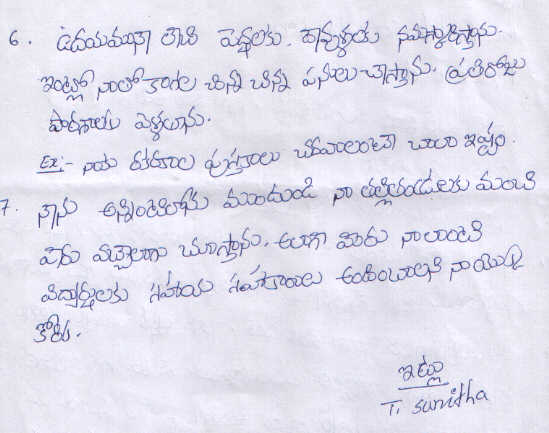 6. ఉదయమునా లేచి పెద్దలకు, నమస్కారిస్తాను.
ఇంట్లో నాతో కాగల చిన్న చిన్న పనులు చేస్తాను. ప్రతిరోజు
పాఠశాలకు వెళ్ళుదును.
Ex:- నాకు రకరకాల పుస్తకాలు చదవాలంటే చాలా ఇష్టం.
7. నేను అన్నింటిలోను ముందుండి నా తల్లిదండ్రులకు మంచి
పేరు వచ్చేలాగా చూస్తాను. ఇలాగే మీరు నాలాంటి
విద్యార్థులకు సహాయ సహకారాలు అందించాలని నా యొక్క
కోరిక.
ఇట్లు
T. sunitha